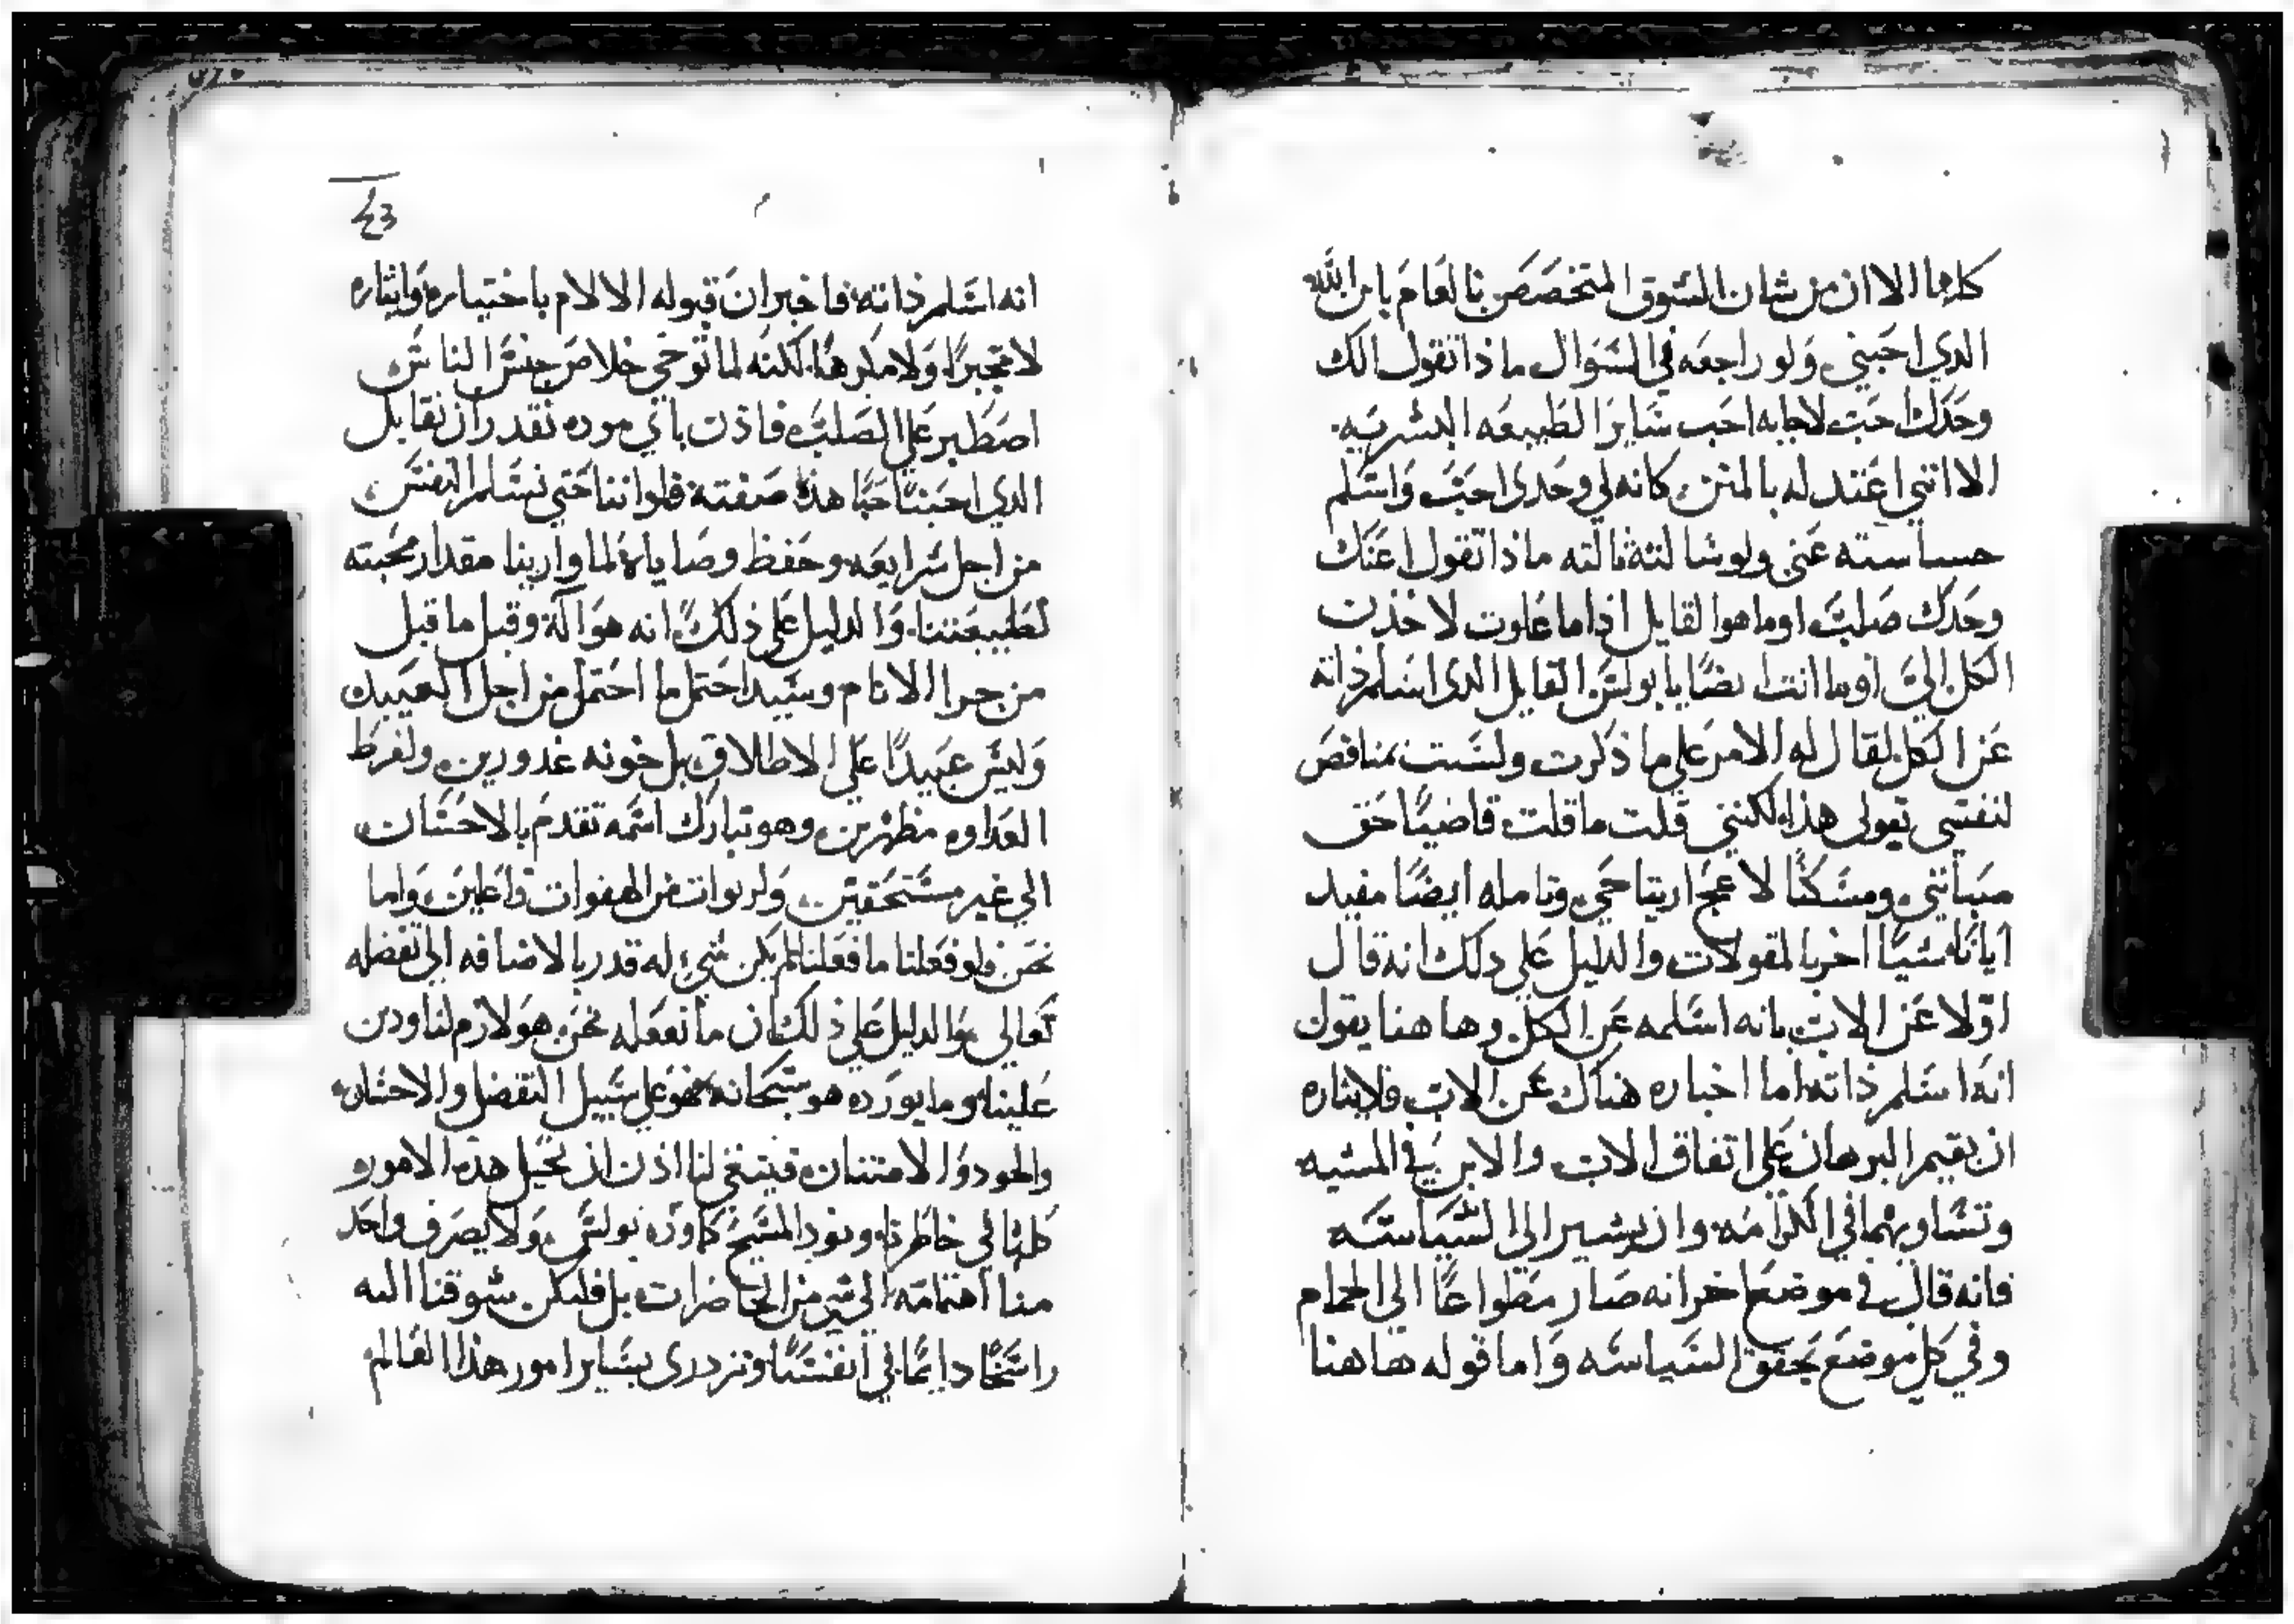 كلاما الا ان من شان الشوق المتخصص بالعام يا ابن الله
الدي احبني ولو راجعه في السوال ماذا تقول الك
وحدك احب لاجابه احب ساير الطبيعه البشريه.
الا انني اعتد له بالمنن كانه لي وحدى احب واسلم
سياسته عني ولو سالته ثالثه ماذا تقول اعنك
وحدك صلب اوما هو القايل اذا ما علوت لاخذت
الكل الي اوما انت ايضا يا بولس القايل الدى اسلم ذاته
عن الكل لقال له الامر على ما ذكرت ولست بمناقض
لنفسي بقولى هذا لكنني قلت ما قلت قاضيا حق
ومسكنا لاعج ارتياحي وتامله ايضا مفيد
ايانا شيا اخر بالمقولات والدليل على دلك انه قال
اولا عن الاب بانه اسلمه عن الكل وها هنا يقول
انه اسلم ذاته اما اخباره هناك عن الاب فلايثاره
ان يقيم البرهان على اتفاق الاب والابن في المشيه
وتساويهما في الكرامه وان يشير الى السياسه
فانه قال في موضع اخر انه صار مطواعا الى الحمام
وفي كل موضع يحقق السياسه واما قوله هاهنا
43
انه اسلم ذاته فاخبر ان قبوله الالام باختياره وايثاره
لا مجبرا ولا مكرها لكنه لما توخي خلاص جنس الناس
اصطبر على الصلب فاذن باي موده نقدر ان نقابل
الدي احبنا حبا هذه صفته فلو اننا حتي نسلم النفس
من اجل شرايعه وحفظ وصاياه لما وازينا مقدار محبته
لطبيعتنا والدليل على ذلك انه هو اله وقبل ما قبل
من جرا الانام وسيد احتمل ما احتمل من اجل العبيد
وليس عبيدا على الاطلاق بل خونه غدورين ولفرط
العداوه مظهرين وهو تبارك اسمه تقدم بالاحسان
الي غير مستحقين ولربوات من الهفوات فاعلين واما
نحن فلو فعلنا ما فعلنا لم يكن شيء له قدر بالاضافه الي تفضله
تعالى والدليل على ذلك ان ما نفعله نحن هو لازم لنا ودين
علينا وما يورده هو سبحانه فهو على سبيل التفضل والاحسان
والجود والامتنان فينبغي لنا اذن ان نخيل هذه الامور
كلها في خاطرنا ونود المسيح كما وده بولس ولا يصرف واحد
منا اهتمامه الي شي من الحاضرات بل فليكن شوقنا اليه
راسخا دايما في انفسنا ونزدرى بساير امور هذا العالم